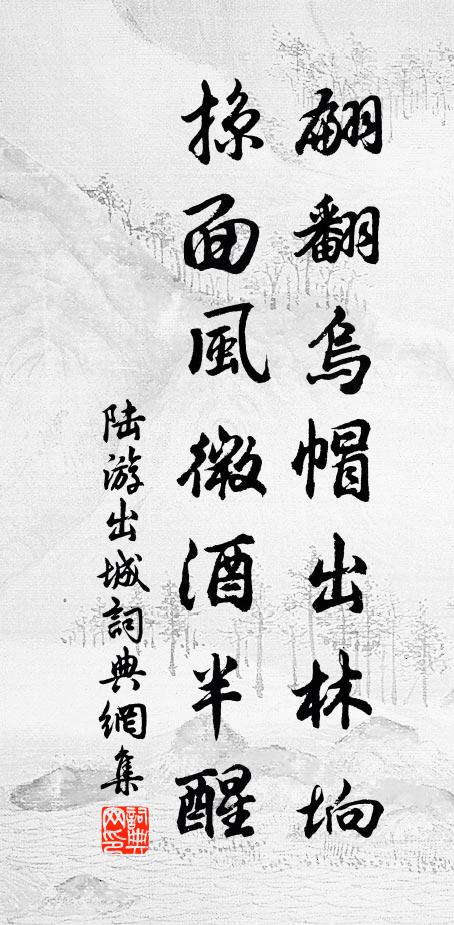 翩翻烏帽出林坰
掠面風微酒半醒
陆游出城詞典網集
詞典网印